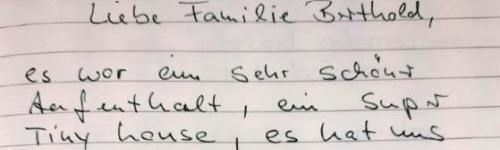 Liebe Familie Berthold,
es war ein sehr schöner
Aufenthalt, ein super
Tiny house, es hat uns